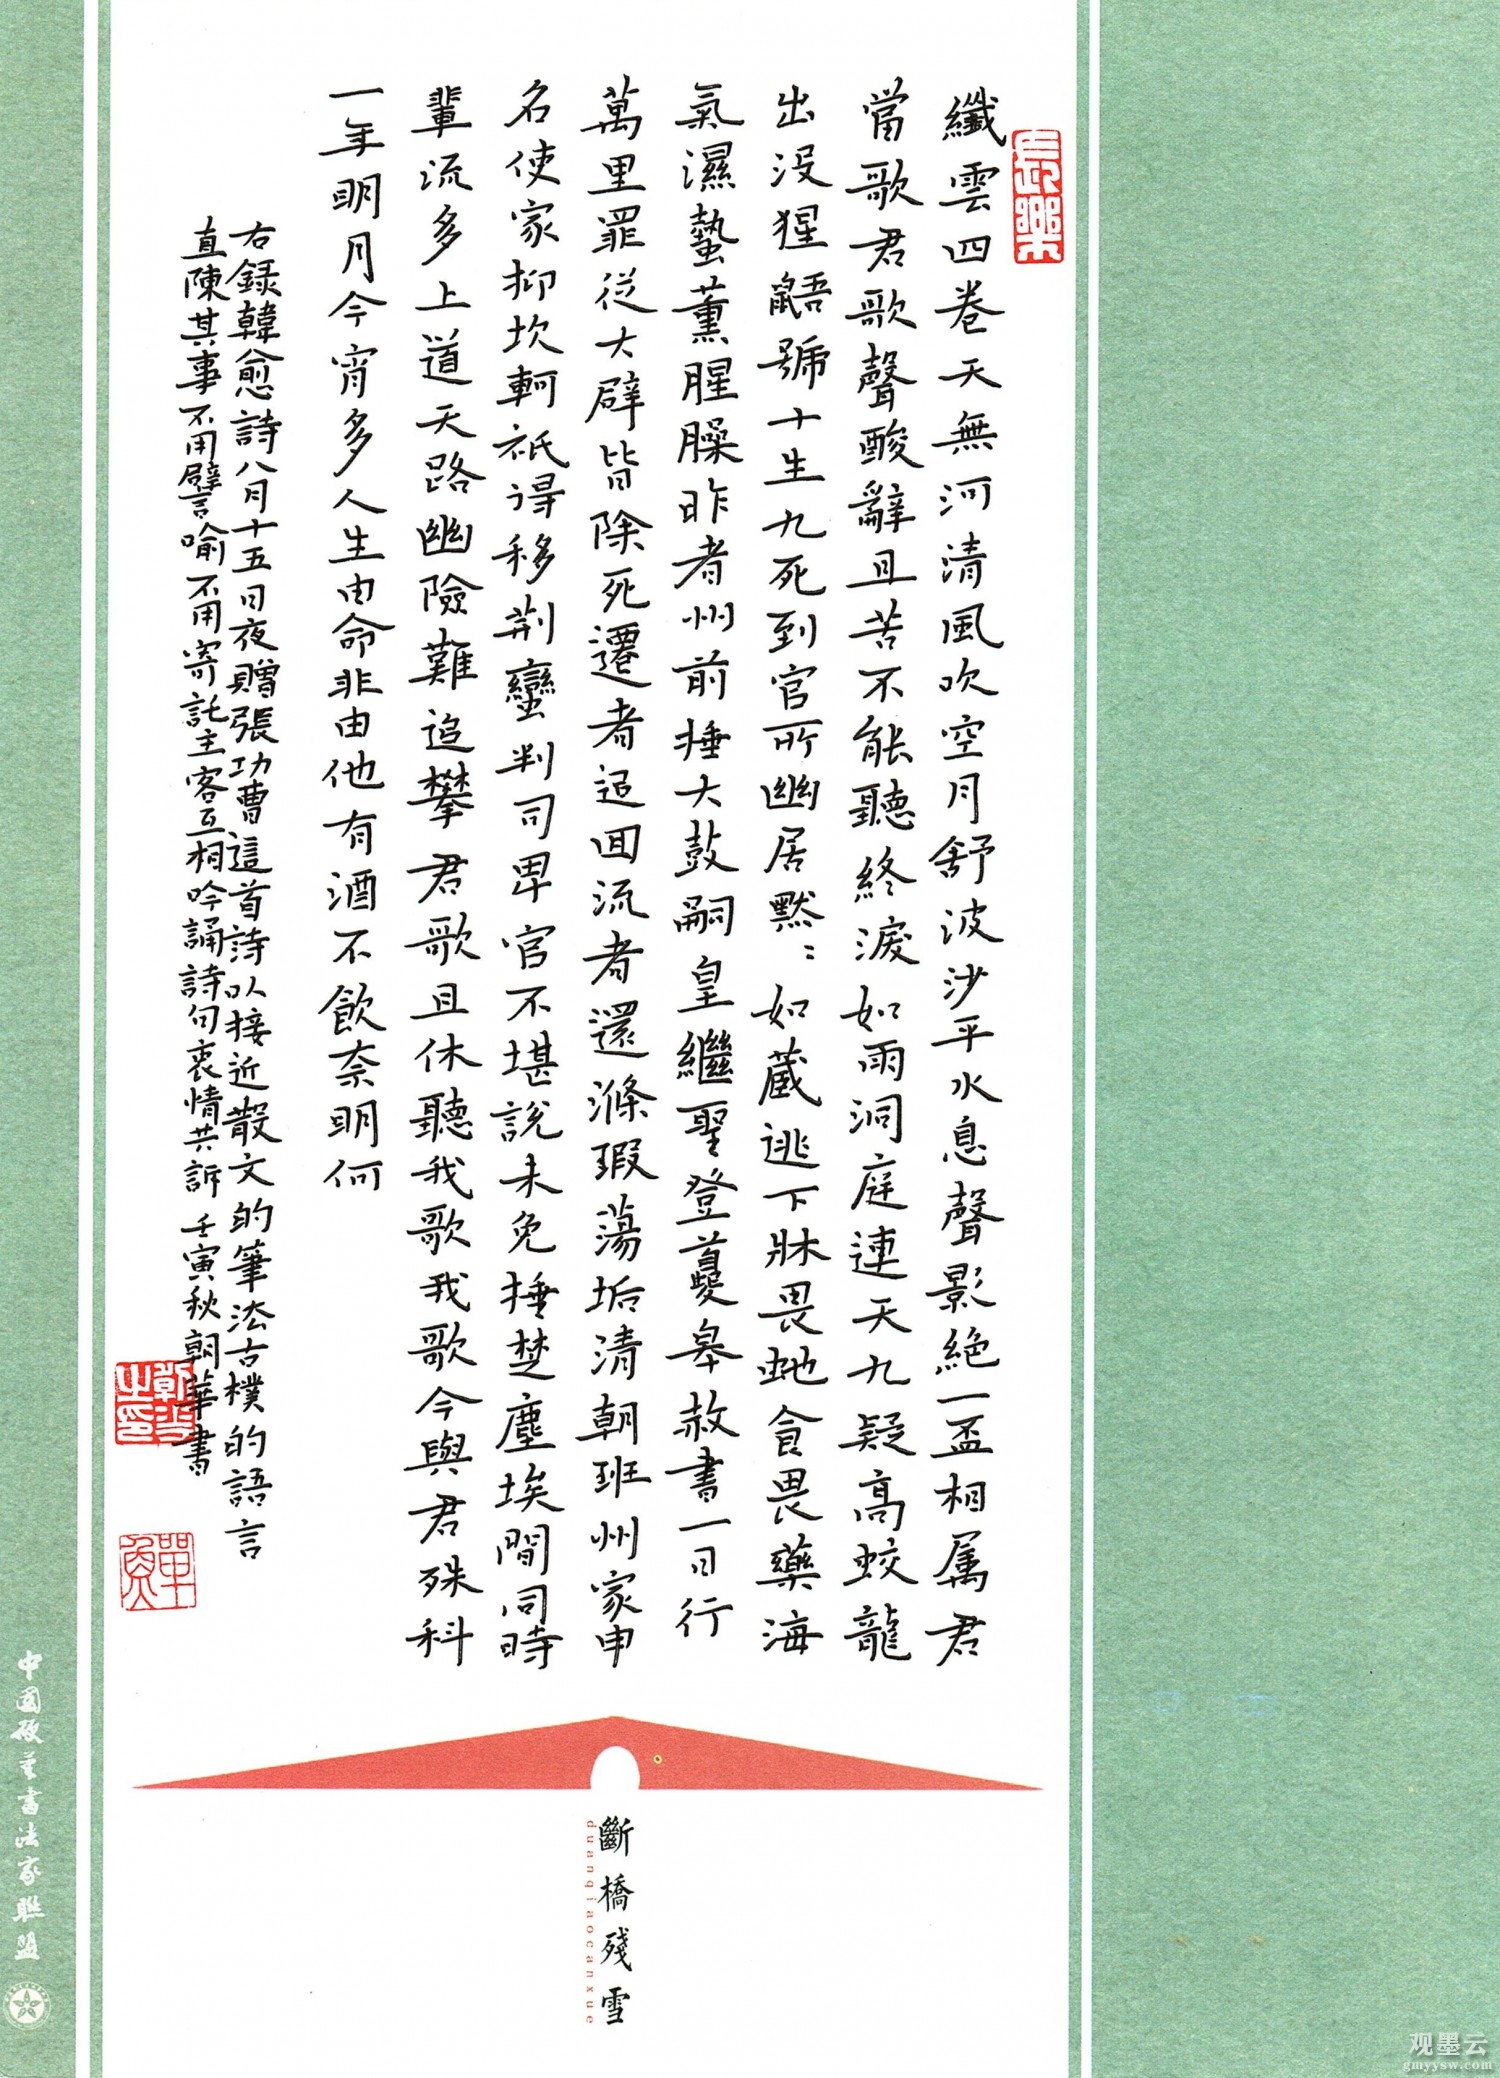 纖雲四卷天無河清風吹空月舒波沙平水息聲影絕一盃相属君
當歌君歌聲酸辭且苦不能聽終淚如雨洞庭連天九疑高蛟龍
出没猩鼯號十生九死到官所幽居默〻如藏逃下牀畏虵食畏藥海
氣濕蟄薰腥臊昨者州前捶大鼓嗣皇繼聖登夔皋赦書一日行
萬里罪從大辟皆除死遷者追回流者還滌瑕蕩垢清朝班州家申
名使家抑坎軻祇得移荆蠻判司卑官不堪説未免捶楚塵埃間同時
輩流多上道天路幽險難追攀君歌且休聽我歌我歌今與君殊科
一年明月今宵多人生由命非由他有酒不飲奈明何
右録韓愈詩八月十五日夜贈張功曹這首詩以接近散文的筆法古樸的語言
直陳其事不用譬喻不用寄託主客互相吟誦詩句衷情共訴 壬寅秋朝華書
長樂
斷橋殘雪
duanqiaocanxue
中國硬筆書法家聯盟
观墨云
gmyysw.com